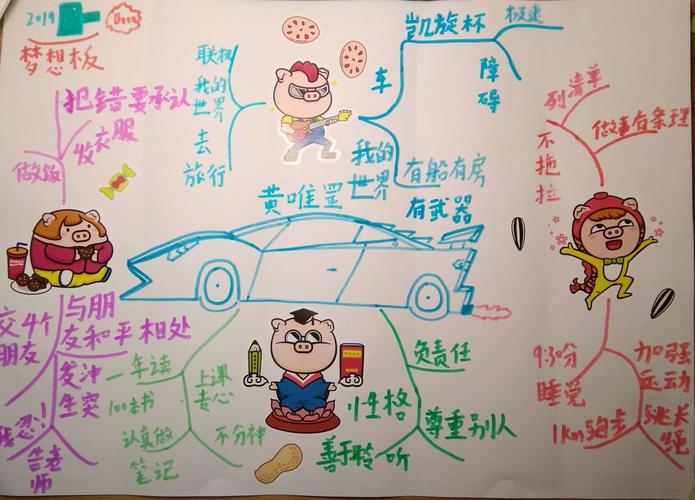 2019
梦想板
犯错要承认
收衣服
做饭
联机
我的
世界
去
旅行
车
凯旋杯
极速
障
碍
我的
世界
有船有房
有武器
黄唯罡
列清单
做事有条理
不拖
拉
交4个
朋友
与朋
友和平相处
发冲
生突
我忍!
告老
师
一年读
100本书
认真做
笔记
上课
专心
不分神
负责任
性格
尊重别人
善于聆听
9:30分
睡觉
1Km跑步
加强
运动
跳长
绳